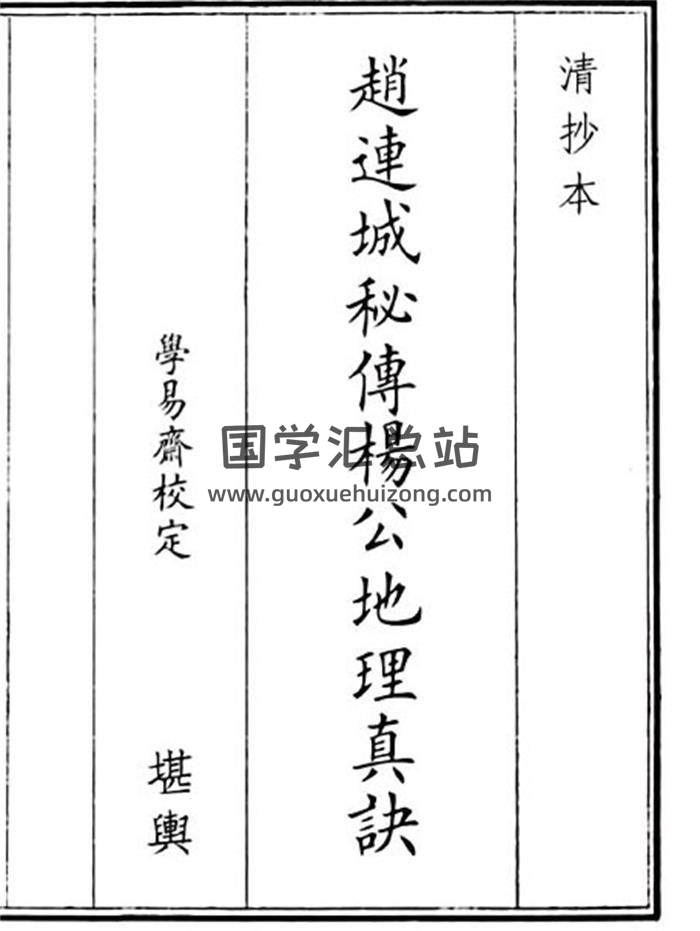 清抄本
趙連城秘傳楊公地理真訣
學易齋校定
堪輿
国学汇总站
www.guoxuehuizong.com